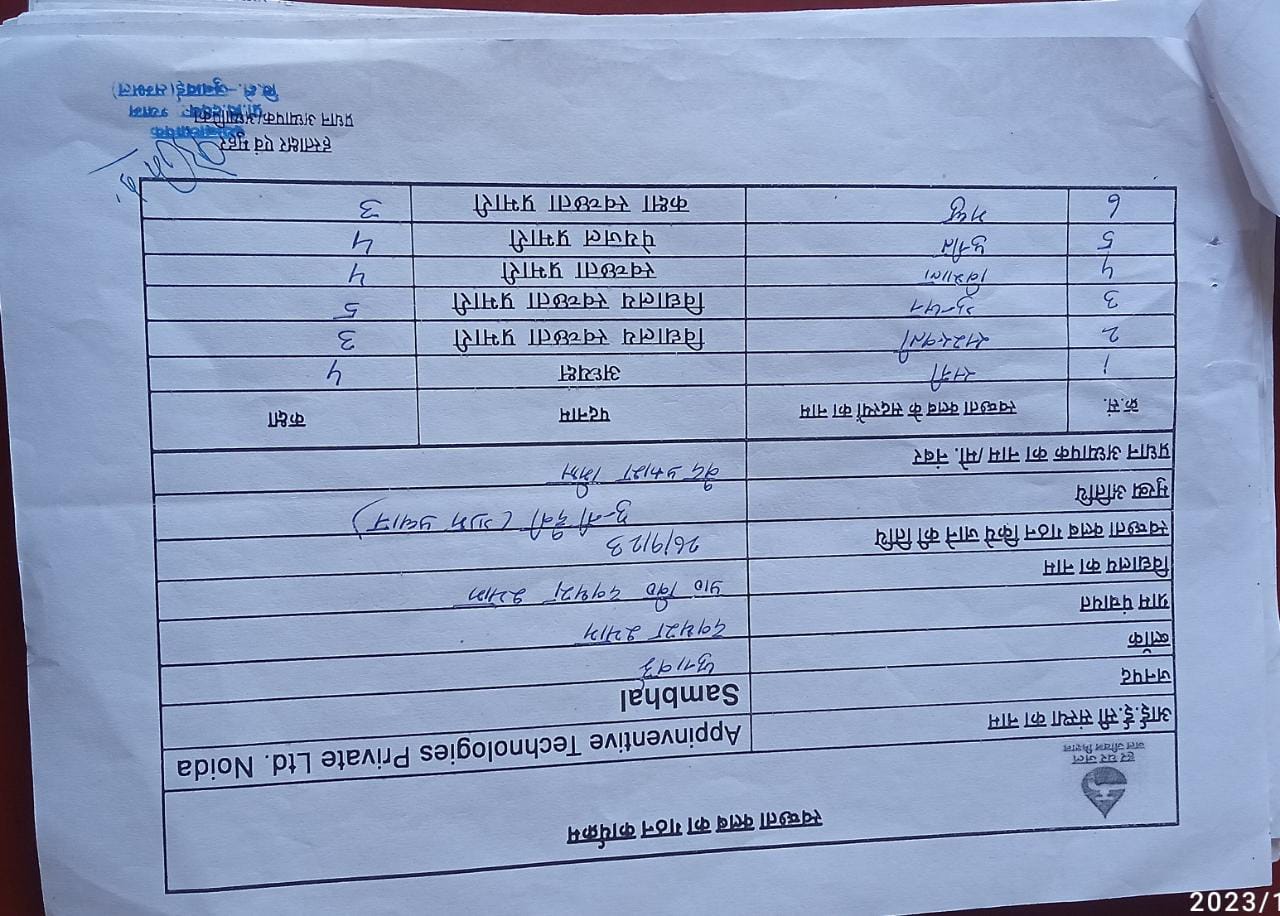 स्वच्छता क्लब का गठन कार्यक्रम
हर घर जल
जल जीवन मिशन
आई.ई.सी संस्था का नाम Appinventive Technologies Private Ltd. Noida
जनपद Sambhal
ब्लॉक जुनावई
ग्राम पंचायत
विद्यालय का नाम प्रा० वि०
स्वच्छता क्लब गठन किये जाने की तिथि 26/9/23
मुख्य अतिथि देवी (ग्राम प्रधान)
प्रधान अध्यापक का नाम /मो. नंबर प्रकाश
क्र.सं. स्वच्छता क्लब के सदस्यों का नाम पदनाम कक्षा
1 अध्यक्ष 4
2 सरस्वती विद्यालय स्वच्छता प्रभारी 3
3 विद्यालय स्वच्छता प्रभारी 5
4 स्वच्छता प्रभारी 4
5 पेयजल प्रभारी 4
6 कक्षा स्वच्छता प्रभारी 3
हस्ताक्षर एवं मुहर
प्रधान अध्यापक/अध्यापिका
वि.क्षे.-जुनावई (सम्भल)
2023/1